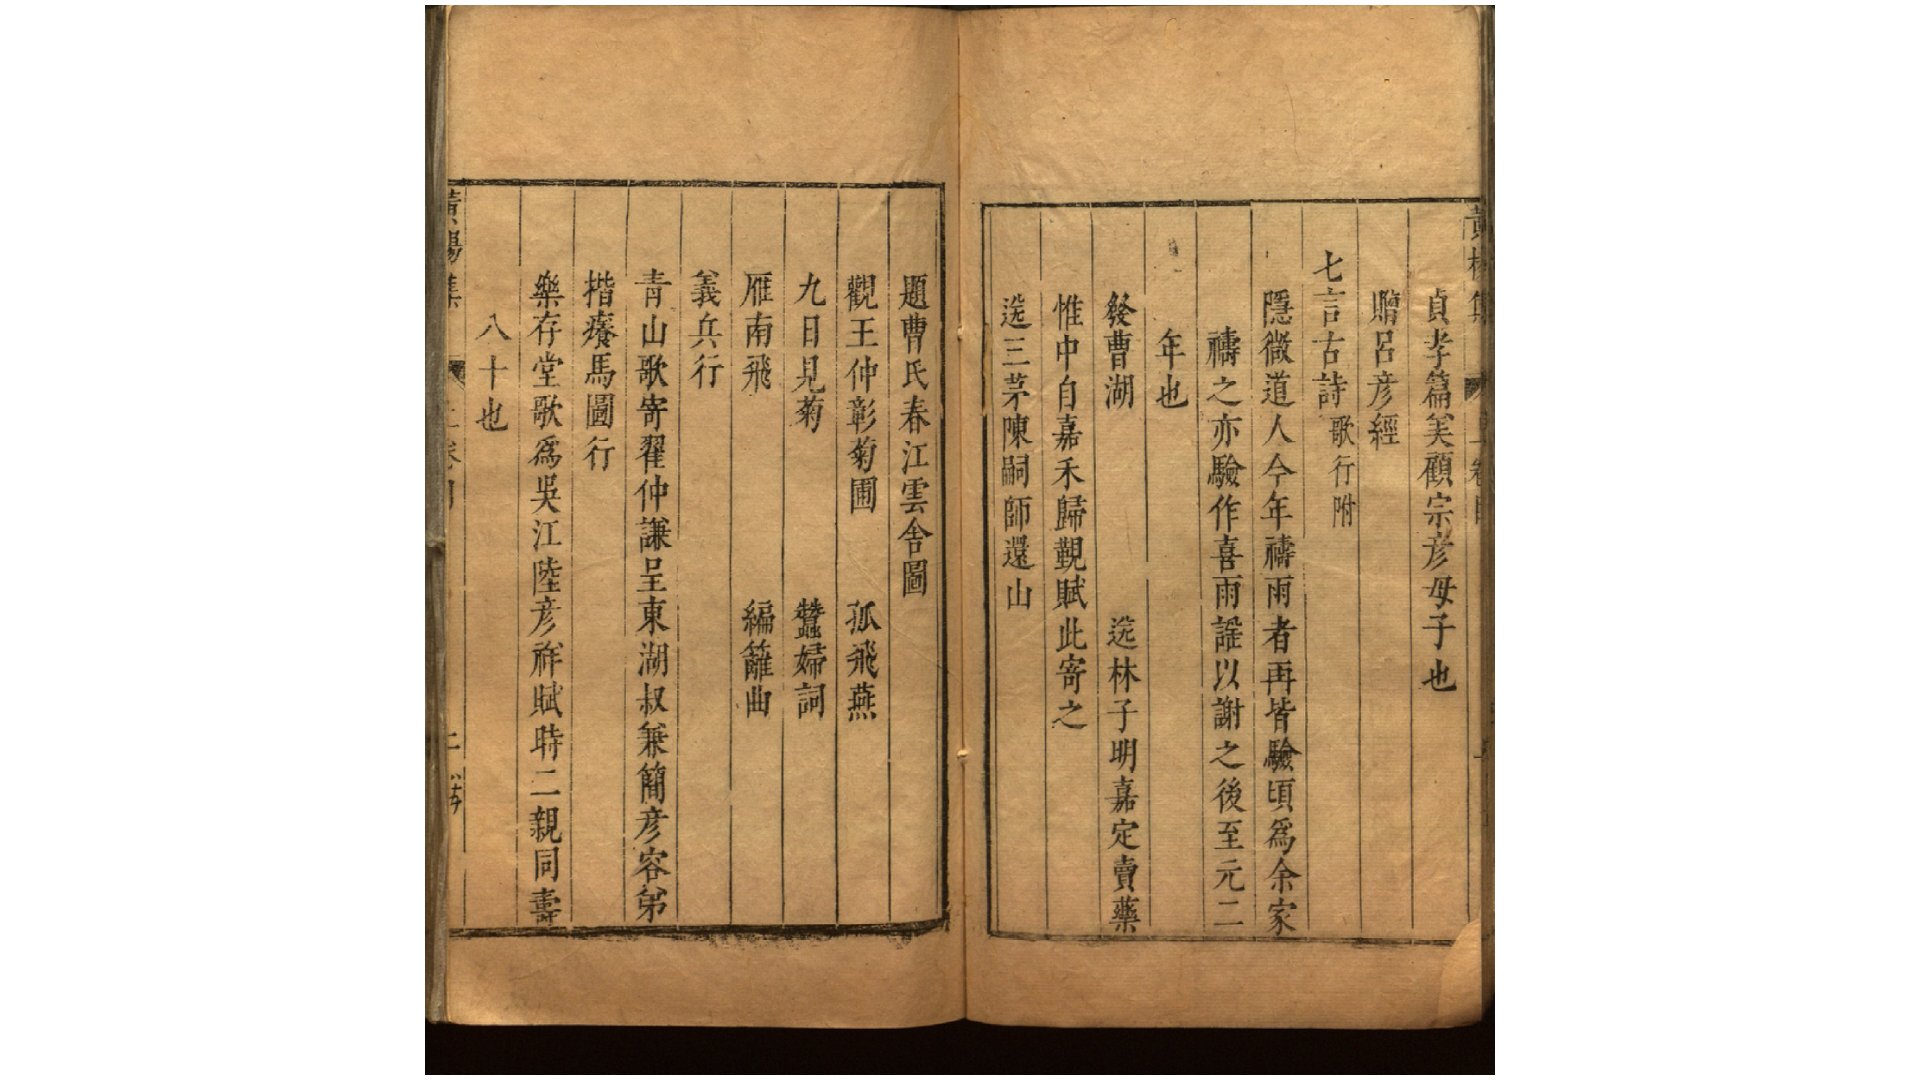 貞孝篇美顧宗彦母子也
贈呂彦經
七言古詩 歌行附
隱微道人今年禱雨者再皆驗頃爲余家
禱之亦驗作喜雨謡以謝之後至元二
年也
發曹湖 送林子明嘉定賣藥
惟中自嘉禾歸覲賦此寄之
送三茅陳嗣師還山
題曹氏春江雲舍圖
觀王仲彰菊圃 孤飛燕
九日見菊 蠶婦詞
雁南飛 編籬曲
義兵行
青山歌寄翟仲謙呈東湖叔兼簡彦容弟
揩癢馬圖行
樂存堂歌爲吳江陸彦祥賦時二親同壽
八十也